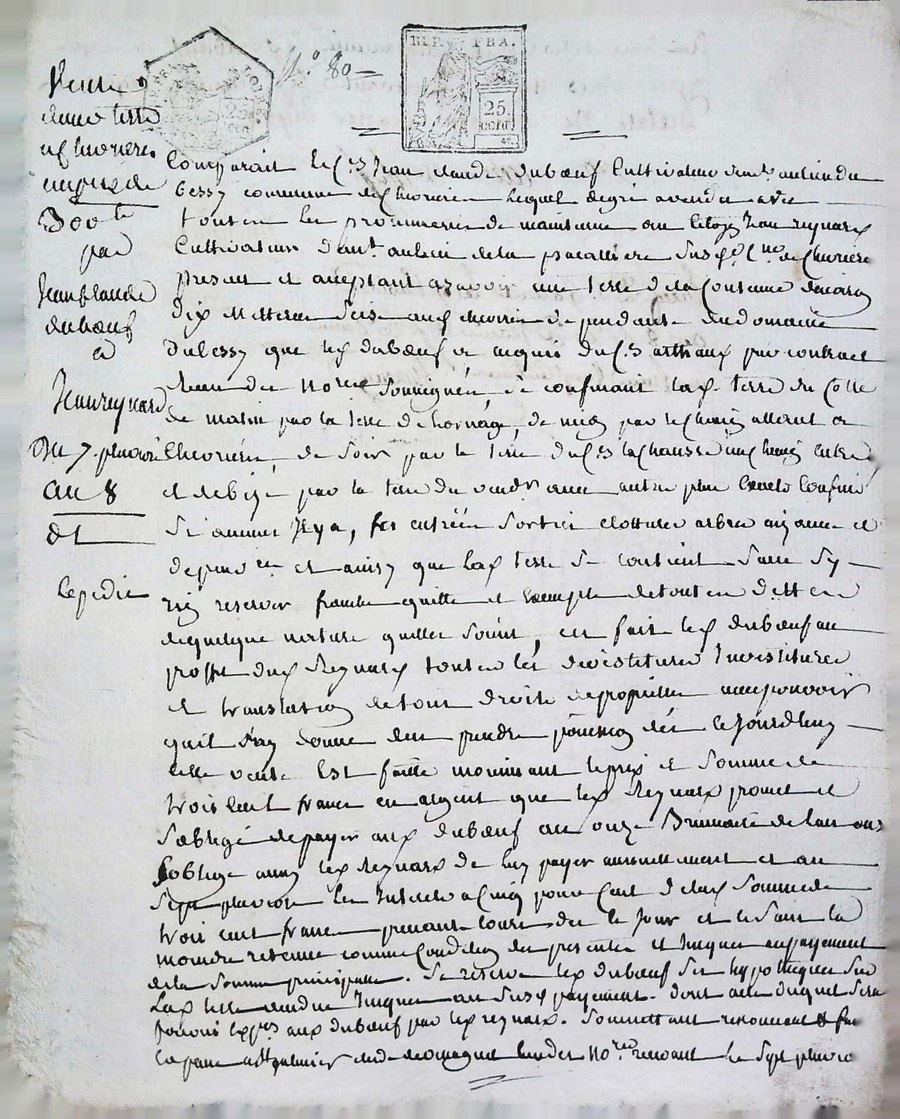 N.° 80
REP. FRA.
25
CENT
Vente
d'une terre
a Chevrieres
au prix de
300 tt
par
Jean Claude
duboeuf
a
Jean reynard
Du 7. pluviose
an 8
dt
Expedie
Comparait le C.en Jean Claude duboeuf Cultivateur au lieu du
bessy commune de Chevrieres lequel de gré a vendu avec
toutes les promesses de maintenue au Citoyen Jean reynard
Cultivateur au lieu de la Chevriere
present et acceptant a savoir une terre de la Contenue
dix Metterées sise aud. Chevrieres dependante du domaine
Dubessy que led duboeuf a acquis du C.en arthaud par contract
Recu du no.re Soussigné se confinant lad. terre du Cotté
de matin par la terre de de midy par le Chemin allant a
Chevrieres, de Soir par la terre du C.en lachausse un Chemin entre
et de bize par la terre du vendr. avec autres plus Exacts Confins
Si aucuns Il y a, ses entrées Sorties clottures arbres aizances et
depend.ces et ainsy que lad. terre Se contient Sans S'y
rien reserver franche quitte et Exempte de toutes dettes
de quelque nature quelles Soint, et fait led duboeuf au
proffit dud. Reynard toutes les devestitures Investitures
et translation de tous droits de propriété avec pouvoir
qu'il luy donne d'en prendre possession dès le jourd'huy
Cette vente Est faitte moyennant le prix et Somme de
trois cent francs en argent que led. Reynard promet et
s'oblige de payer aud duboeuf au onze Brumaire de lan
S'oblige aussy led. Reynard de luy payer annuellement et au
Sept pluviose les Interets a Cinq pour Cent de lad. Somme de
trois cent francs prenant cours dès ce Jour et le Sans la
moindre retenue comme Condition des presentes et Jusques au payement
de la Somme principale. Se reserve led. duboeuf Son hypotheque Sur
Lad. terre vendue Jusques au Susd. payement. Dont acte duquel Sera
fourni Exp.on aud duboeuf par led reynard. Soumettant renonceant & fait
no.re le Sept pluviose